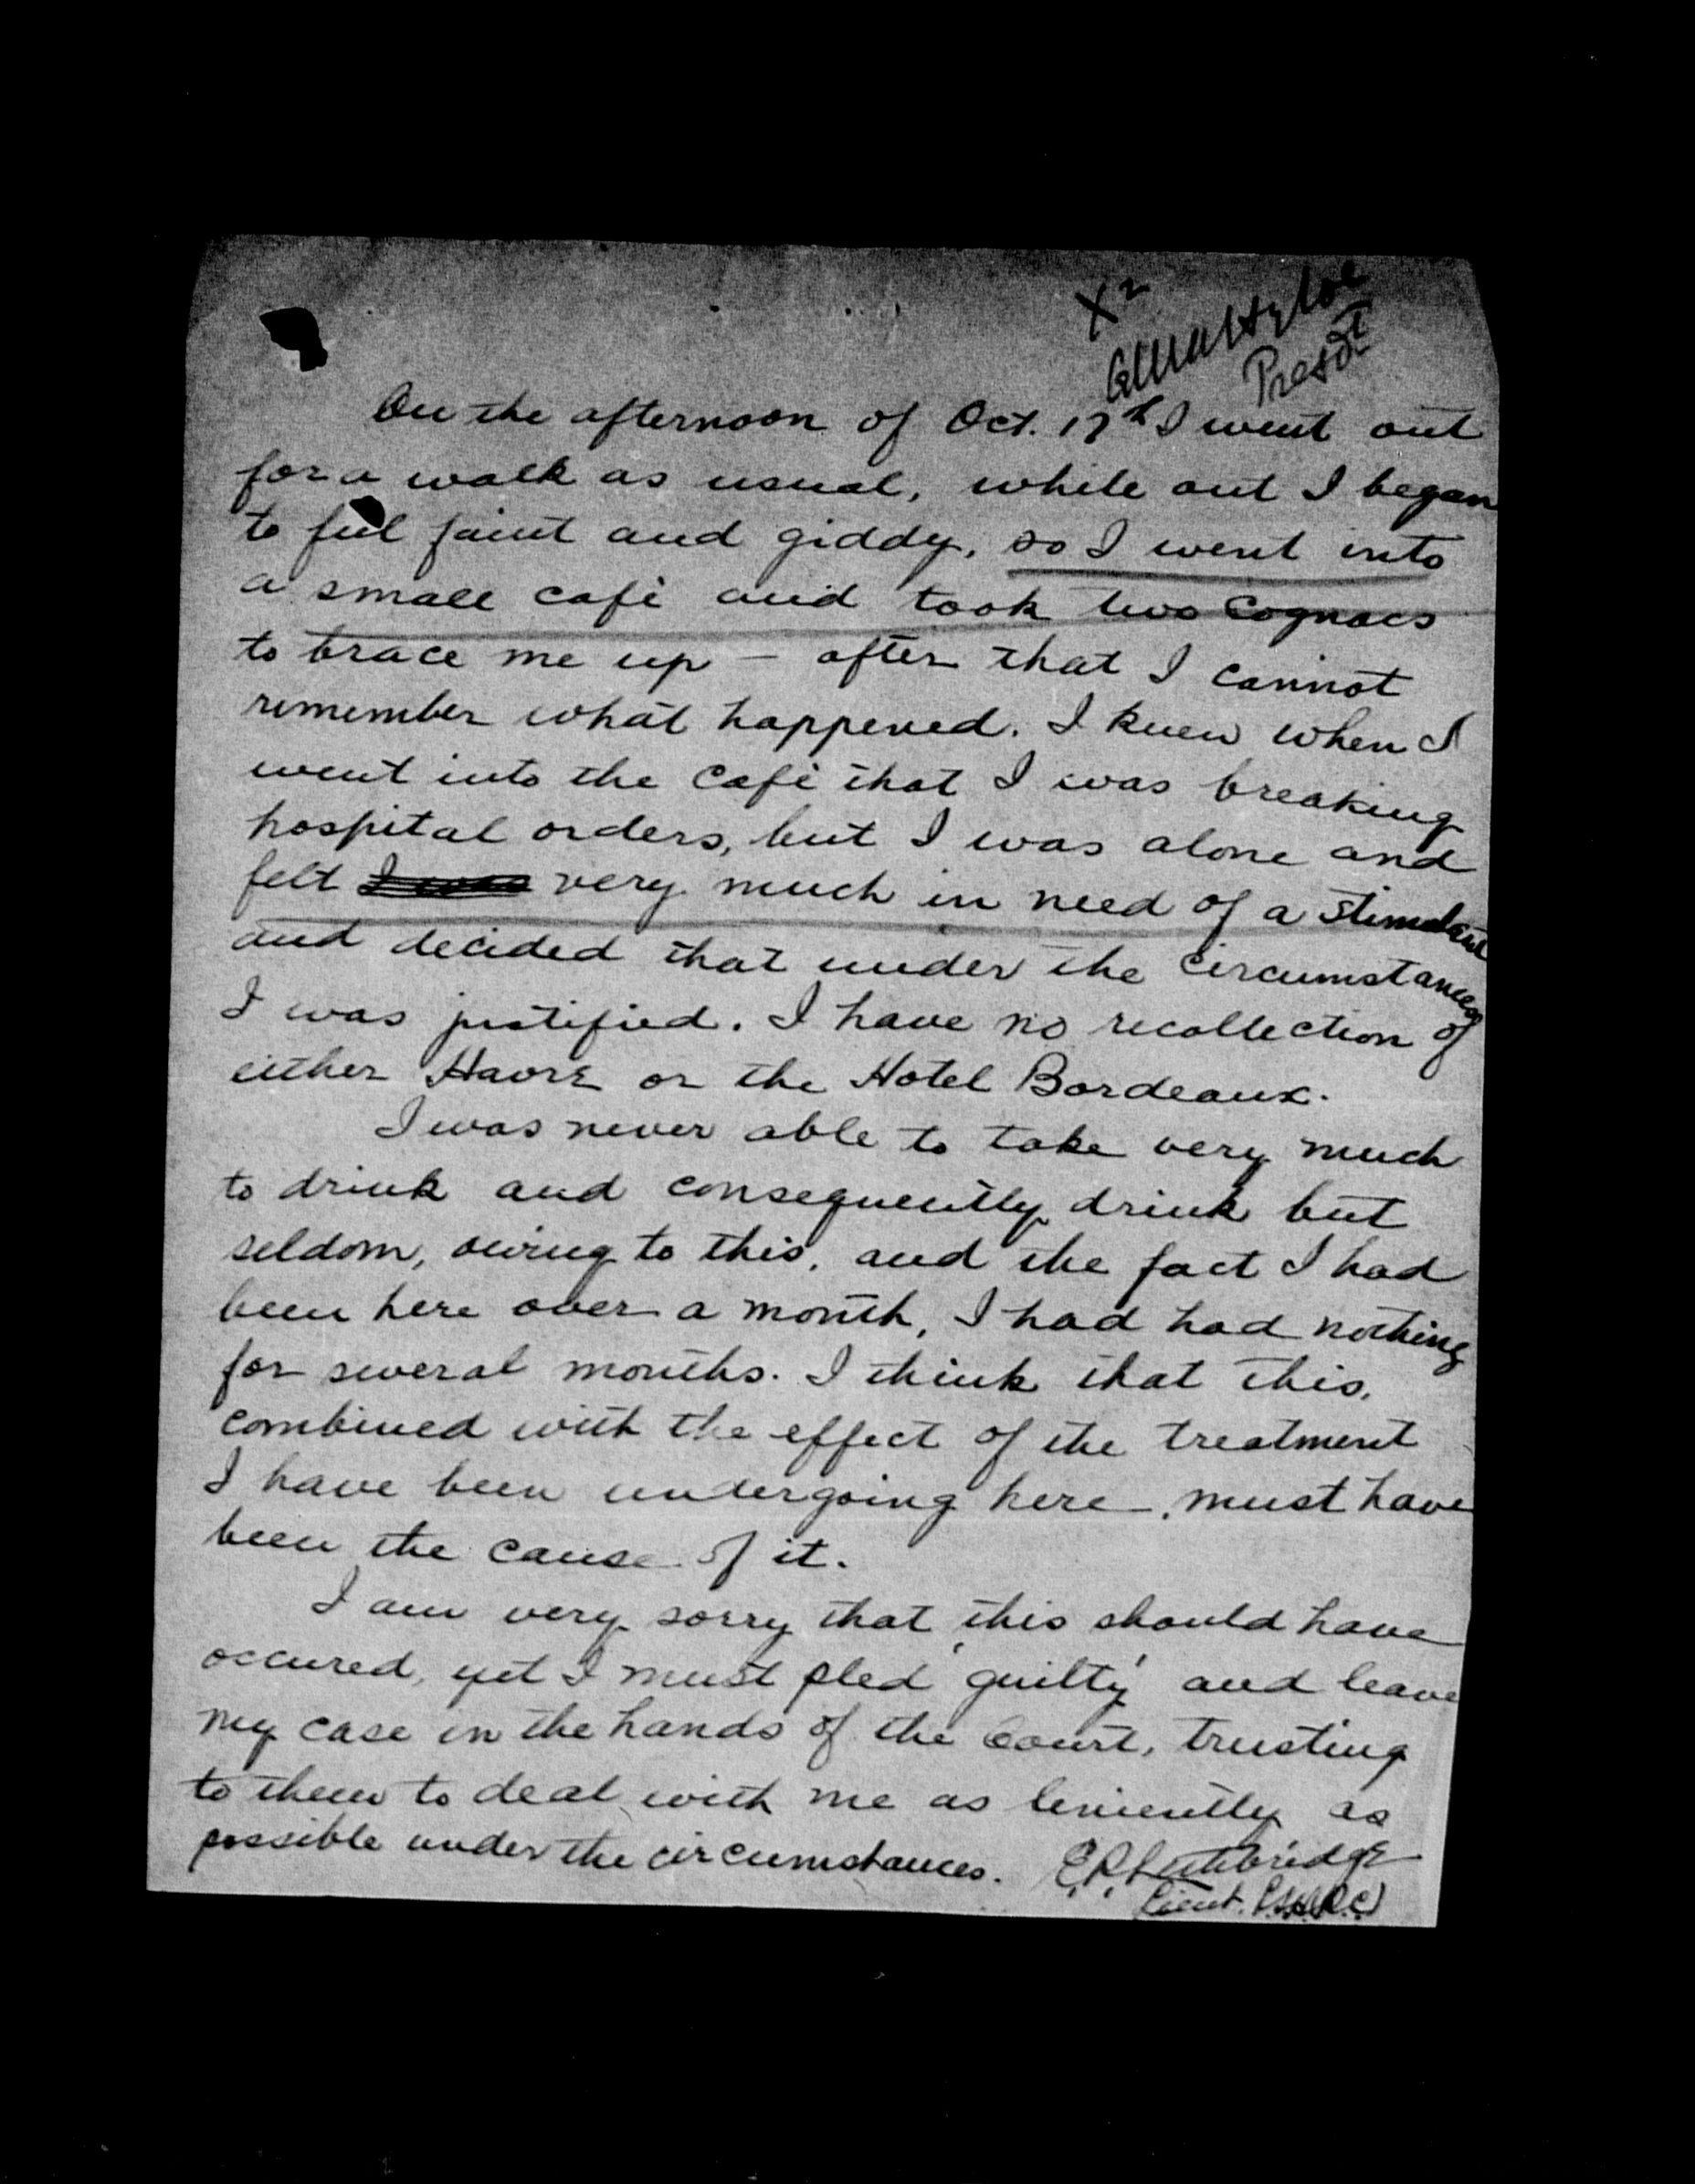 X2
Presdt
On the afternoon of Oct. 17th I went out
for a walk as usual, while out I began
to feel faint and giddy, so I went into
a small café and took two Cognacs
to brace me up – after that I cannot
remember what happened. I knew when I
went into the Café that I was breaking
hospital orders, but I was alone and
felt I was very much in need of a stimulant
and decided that under the circumstances
I was justified. I have no recollection of
either Havre or the Hotel Bordeaux.
I was never able to take very much
to drink and consequently drink but
seldom, owing to this, and the fact I had
been here over a month, I had had nothing
for several months. I think that this,
combined with the effect of the treatment
I have been undergoing here, must have
been the cause of it.
I am very sorry that this should have
occured, yet I must pled 'guilty' and leave
my case in the hands of the Court, trusting
to them to deal with me as leniently as
possible under the circumstances. E.R. Lethbridge
Lieut.